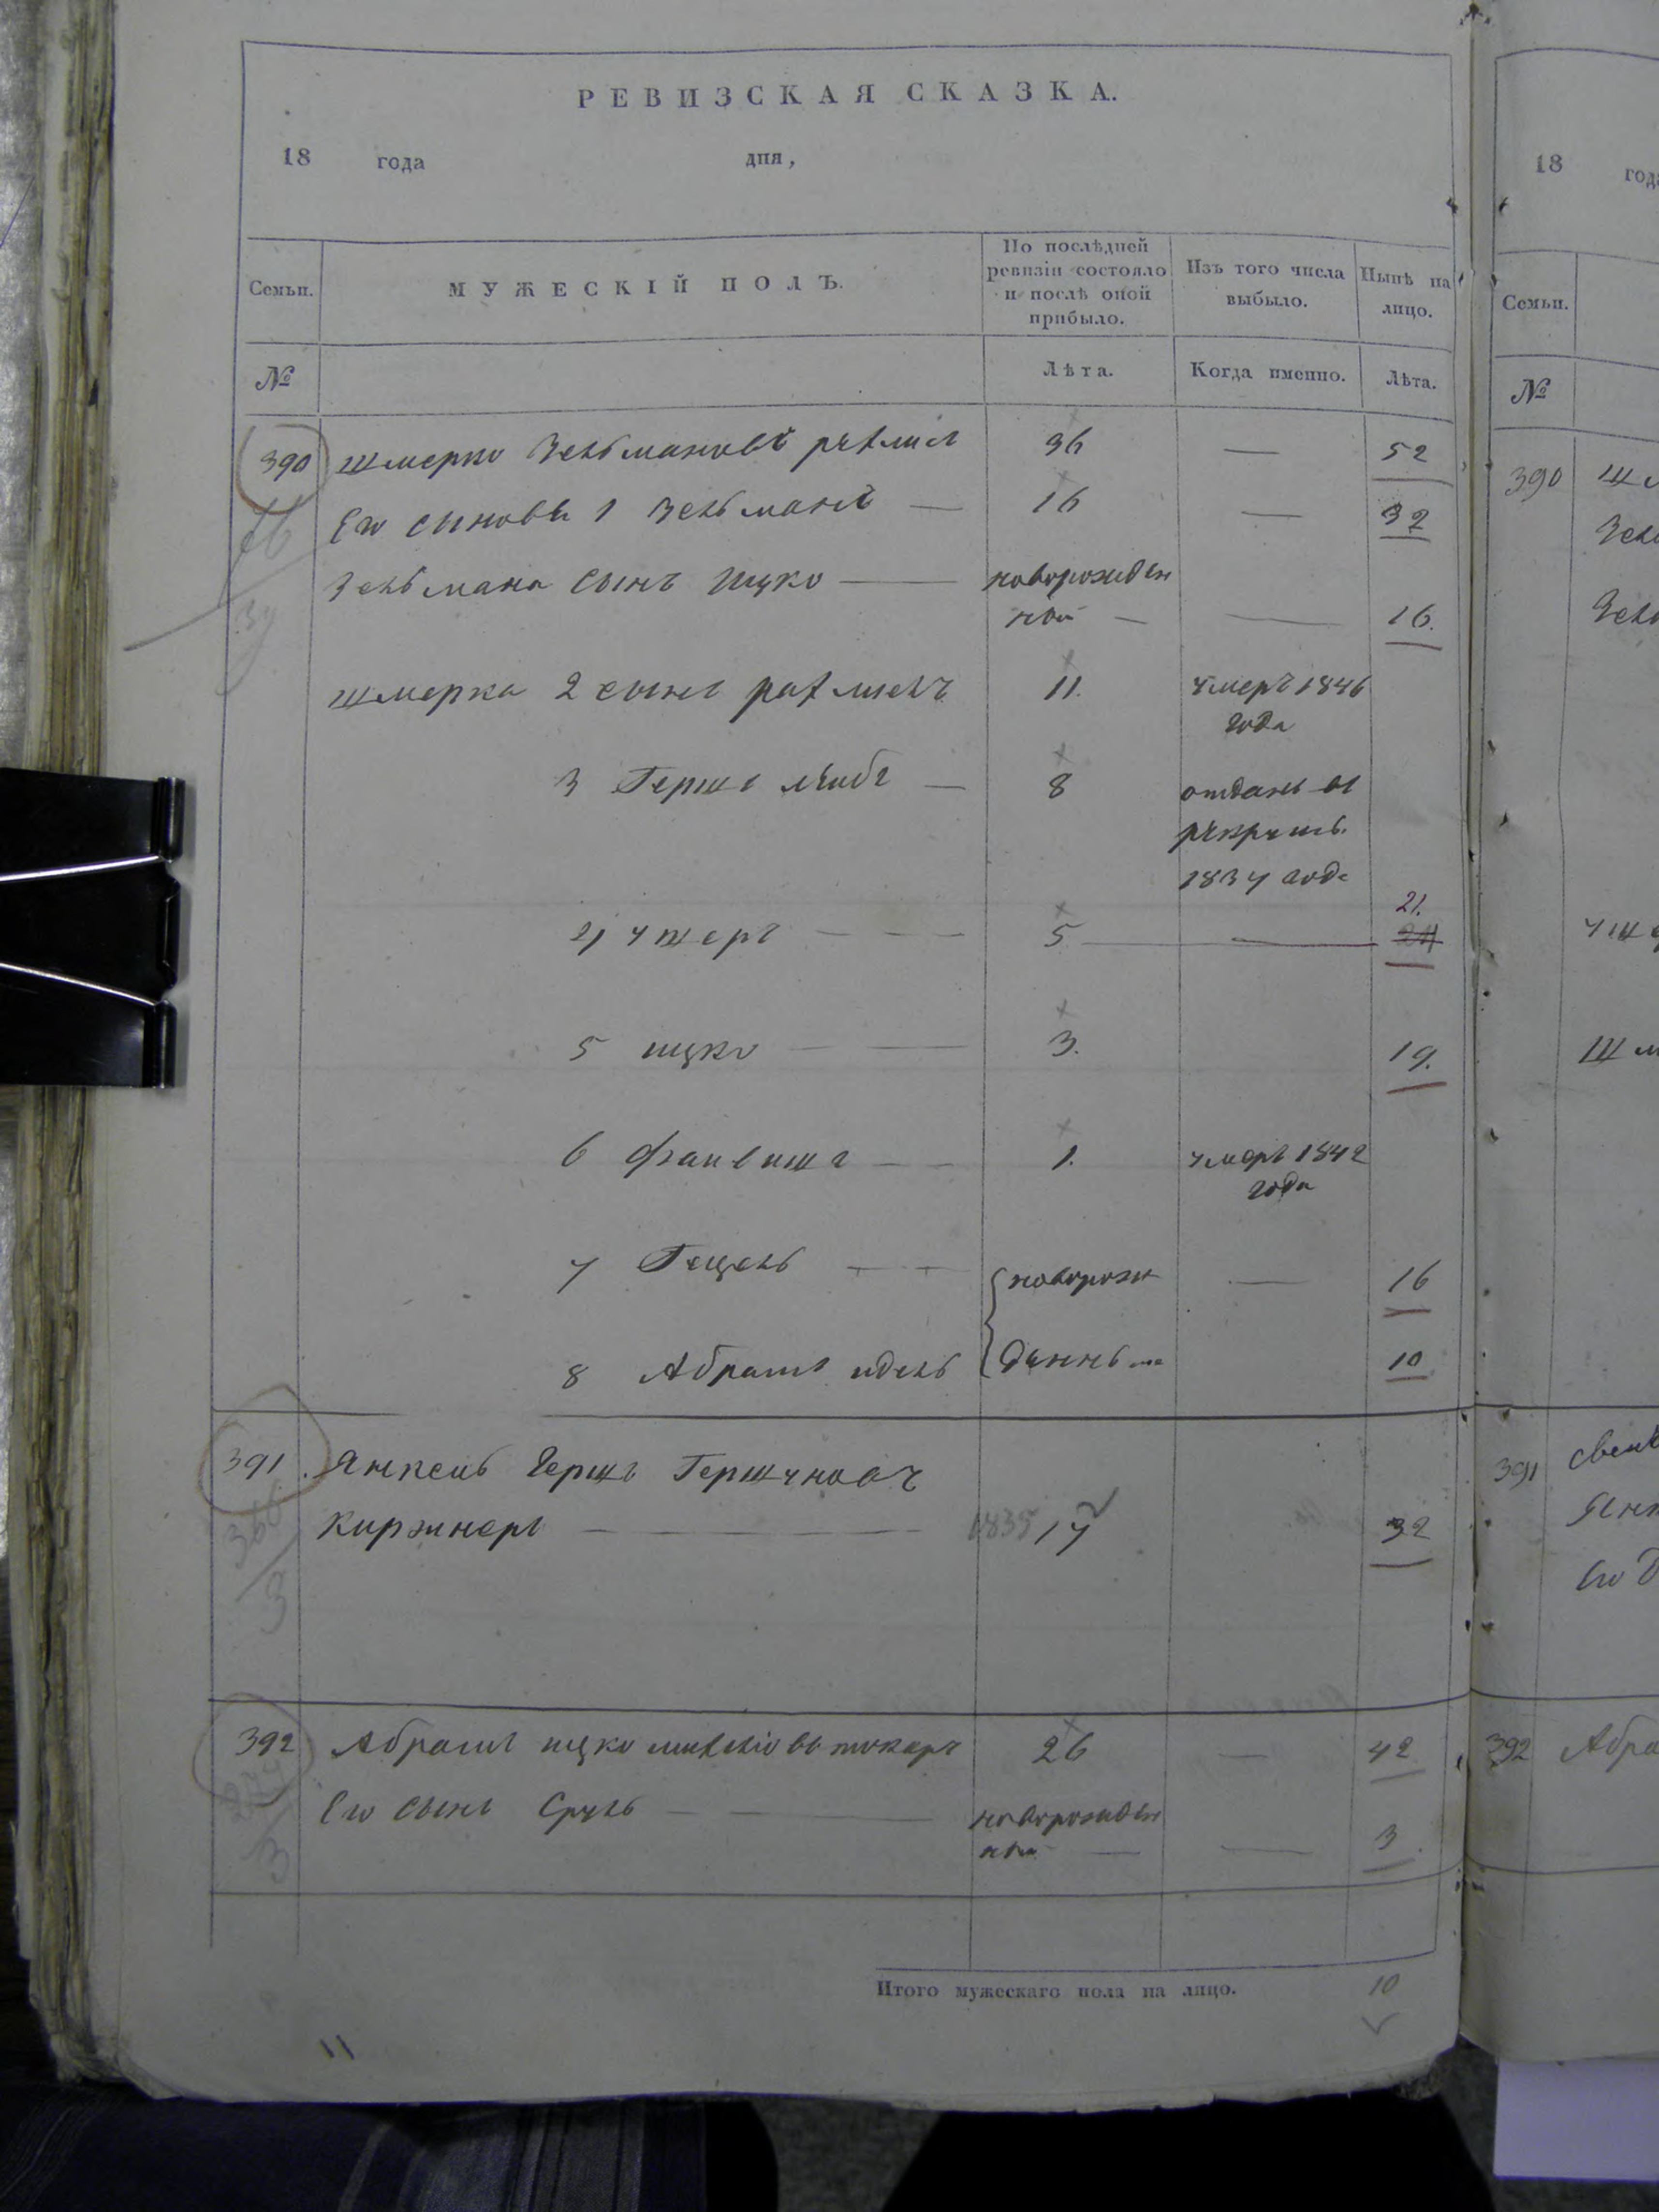 РЕВИЗСКАЯ СКАЗКА.
18 года дня,
Семьи. МУЖЕСКІЙ ПОЛЪ. По послѣдней ревизіи состояло и послѣ оной прибыло. Изъ того числа выбыло. Нынѣ на лицо.
№ Лѣта. Когда именно. Лѣта.
390 Шмерко Зельмановъ 36 — 52
Его сыновья 1 Зельманъ — 16 — 32
Зельмана сынъ Ицко — новорожден
ный — — 16.
Шмерка 2 сынъ 11. умеръ 1846
года
3 Гершъ Лейбъ — 8 отданъ въ
рекруты
1834 года
21.
4 Ушеръ — — 5 — 24
5 Ицко — — 3. 19.
6 Файвишъ — — 1. умеръ 1842
года
7 Гецель — — новорож — 16
8 Абрамъ Идель денные 10
391. Янкель Гершъ Гершуновъ
Киржнеръ — — — 1835 17 32
392 Абрамъ Ицко токаръ 26 — 42
Его сынъ Сруль — — новорожден
ный — — 3.
Итого мужескаго пола на лицо. 10
11
18 года
Семьи.
№
390
391
392 Абра